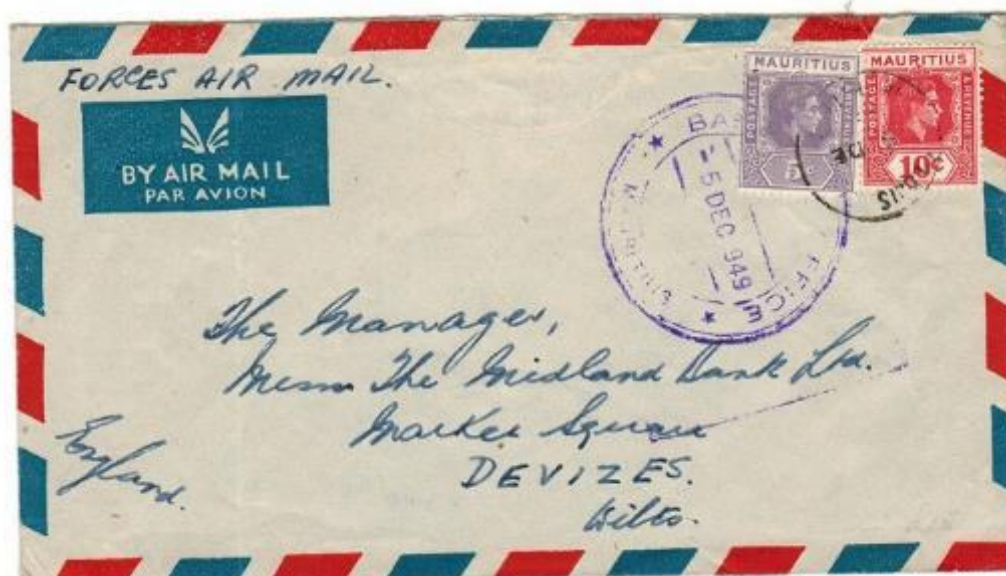 FORCES AIR MAIL.
BY AIR MAIL
PAR AVION
MAURITIUS
POSTAGE
& REVENUE
5c
MAURITIUS
POSTAGE
& REVENUE
10c
BA
FFICE
5 DEC 949
MAURITIUS
The Manager,
Messrs The Midland Bank Ltd.
Market Square
DEVIZES.
Wilts.
England.